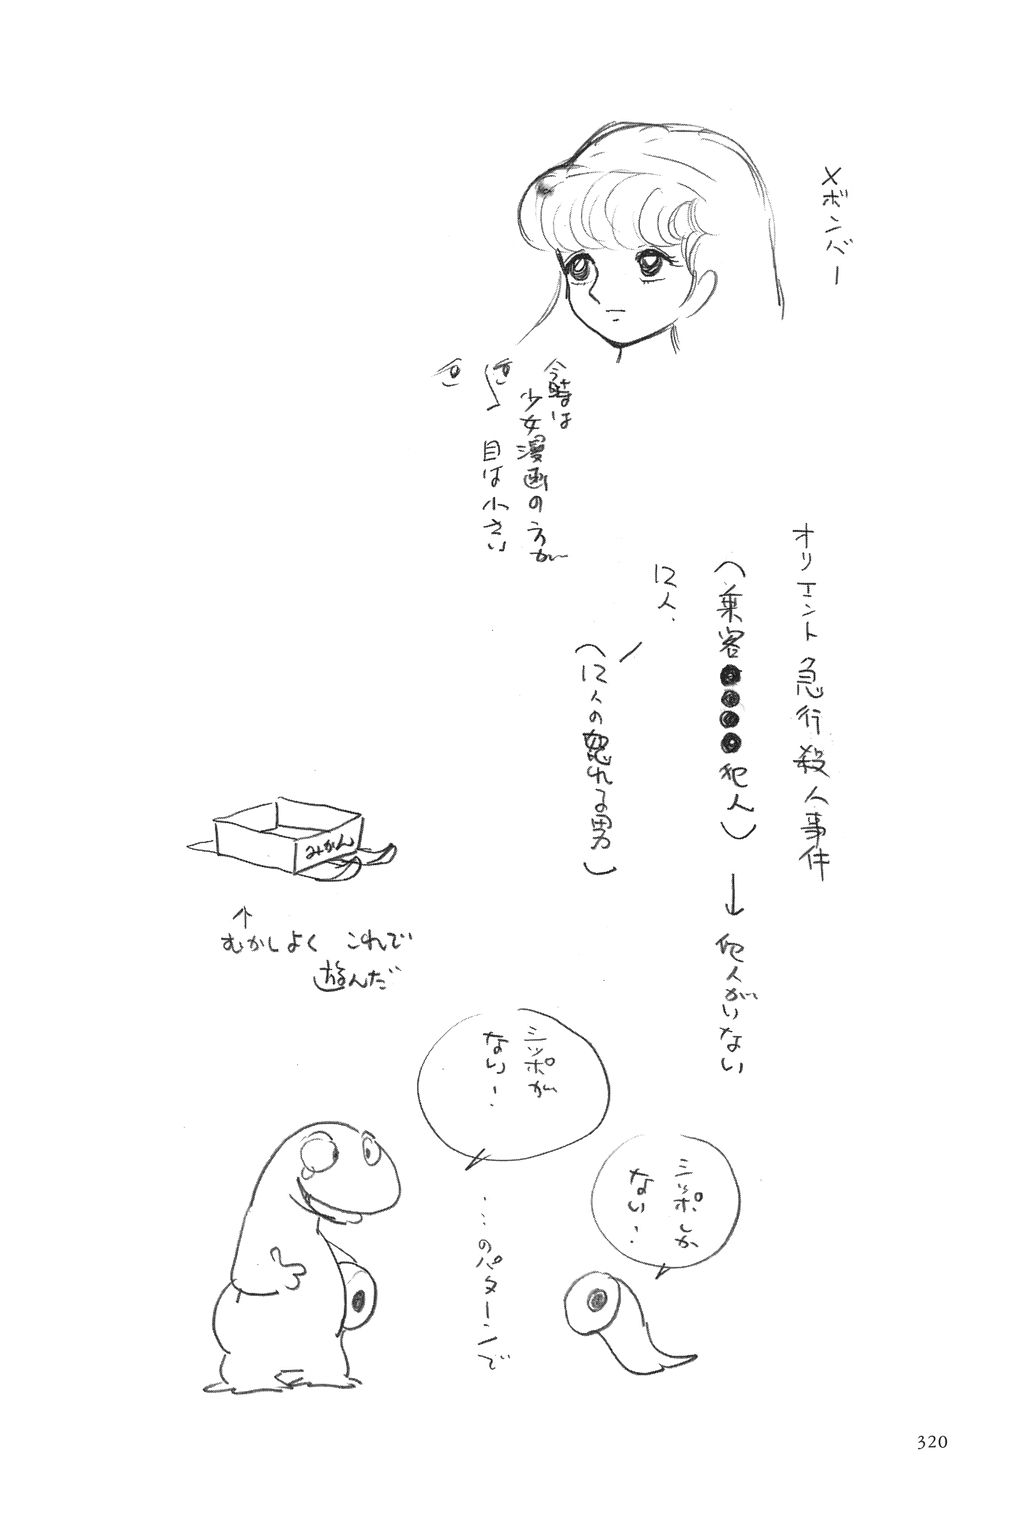 Xボンバー
今時は
少女漫画の方が
目は小さい
オリエント急行殺人事件
(乗客●●●●犯人)→犯人がいない
12人.
(12人の怒れる男)
みかん
↑
むかしよく これで
遊んだ
シッポが
ない!
シッポしか
ない!
……のパターンで
320